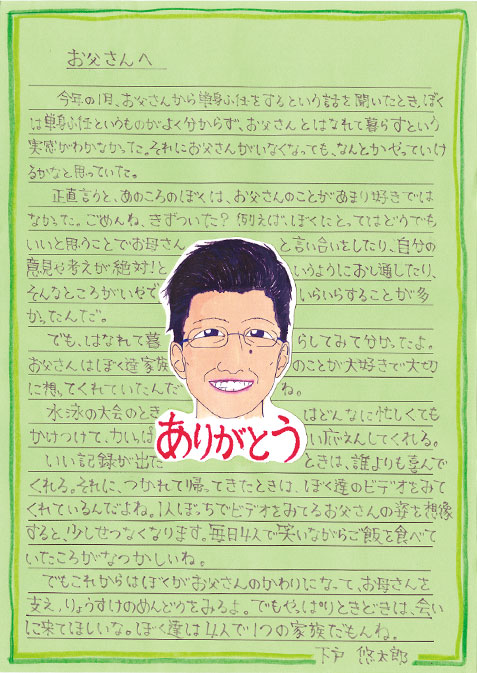 お父さんへ
今年の1月、お父さんから単身ふ任をするという話を聞いたとき、ぼく
は単身ふ任というものがよく分からず、お父さんとはなれて暮らすという
実感がわかなかった。それにお父さんがいなくなっても、なんとかやっていけ
るかなと思っていた。
正直言うと、あのころのぼくは、お父さんのことがあまり好きでは
なかった。ごめんね、きずついた？例えば、ぼくにとってはどうでも
いいと思うことでお母さんと言い合いをしたり、自分の
意見や考えが絶対！というようにおし通したり、
そんなところがいやでいらいらすることが多
かったんだ。
でも、はなれて暮らしてみて分かったよ。
お父さんはぼく達家族のことが大好きで大切
に想ってくれていたんだね。
水泳の大会のときはどんなに忙しくても
かけつけて、力いっぱい応えんしてくれる。
いい記録が出たときは、誰よりも喜んで
くれる。それに、つかれて帰ってきたときは、ぼく達のビデオをみて
くれているんだよね。1人ぼっちでビデオをみてるお父さんの姿を想像
すると、少しせつなくなります。毎日4人で笑いながらご飯を食べて
いたころがなつかしいね。
でもこれからはぼくがお父さんのかわりになって、お母さんを
支え、りょうすけのめんどうをみるよ。でもやっぱりときどきは、会い
に来てほしいな。ぼく達は4人で1つの家族だもんね。
下戸 悠太郎
ありがとう